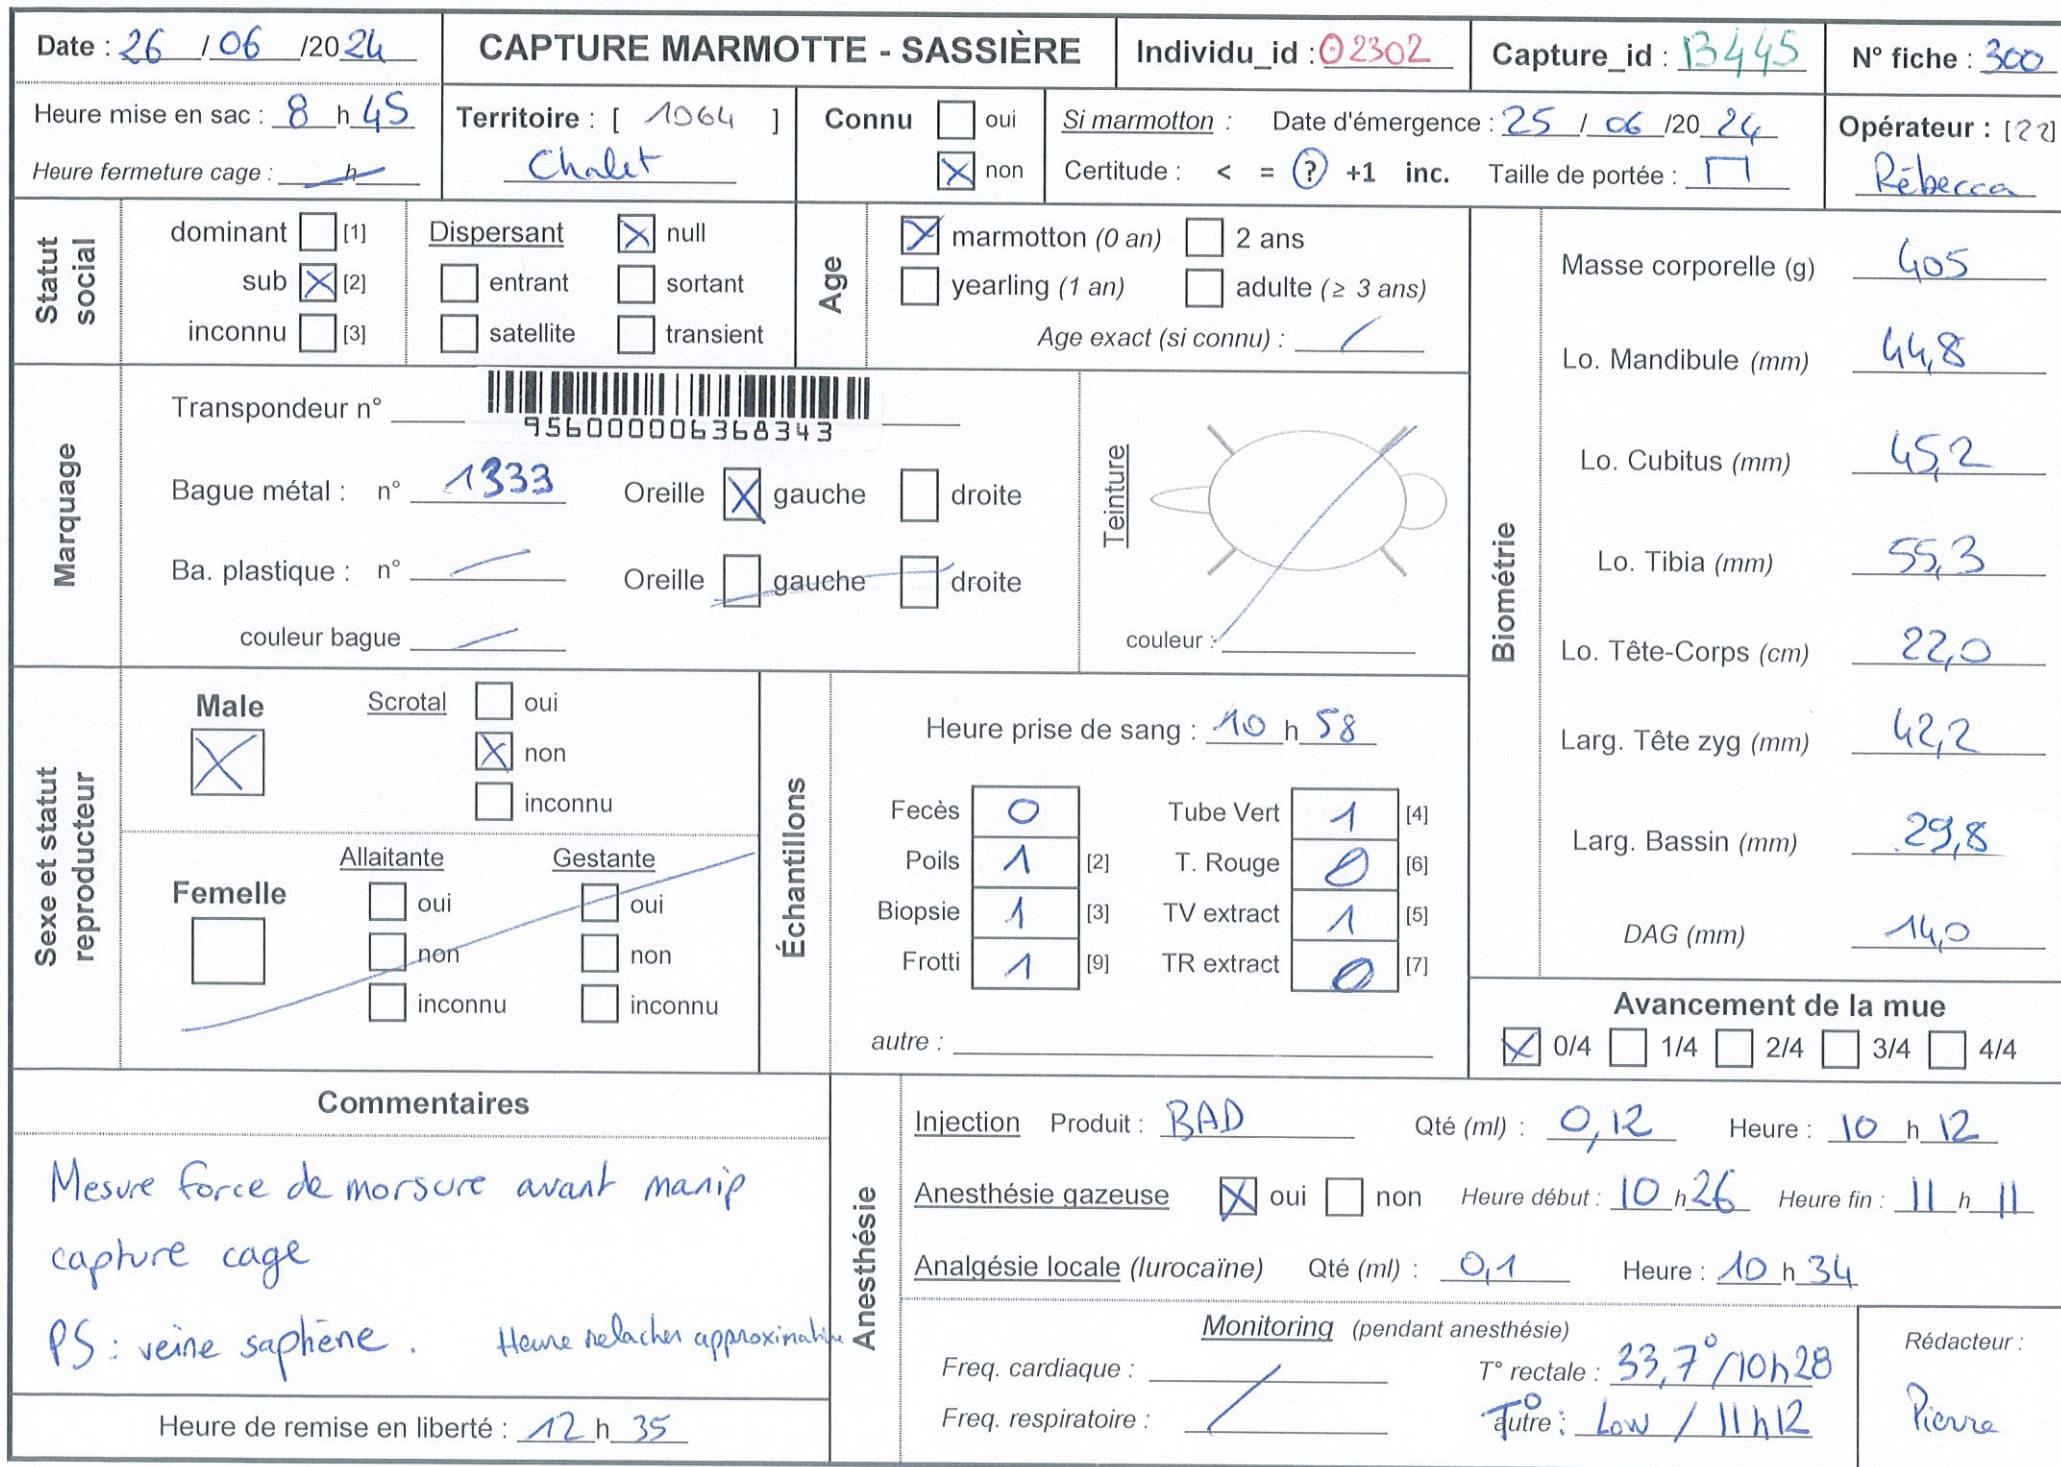 Date : 26 / 06 /20 24 CAPTURE MARMOTTE - SASSIÈRE Individu_id : 02302 Capture_id : 13445 N° fiche : 300
Heure mise en sac : 8 h 45 Territoire : [ 1064 ] Connu oui Si marmotton : Date d'émergence : 25 / 06 /20 24 Opérateur : [22]
Heure fermeture cage : h Chalet non Certitude : < = ? +1 inc. Taille de portée : Rébecca
Statut social
dominant [1] Dispersant null
sub [2] entrant sortant
inconnu [3] satellite transient
Age
marmotton (0 an) 2 ans
yearling (1 an) adulte (≥ 3 ans)
Age exact (si connu) :
Marquage
Transpondeur n° 956000006368343
Bague métal : n° 1333 Oreille gauche droite
Ba. plastique : n° Oreille gauche droite
couleur bague
Teinture
couleur :
Biométrie
Masse corporelle (g) 405
Lo. Mandibule (mm) 44,8
Lo. Cubitus (mm) 45,2
Lo. Tibia (mm) 55,3
Lo. Tête-Corps (cm) 22,0
Larg. Tête zyg (mm) 42,2
Larg. Bassin (mm) 29,8
DAG (mm) 14,0
Sexe et statut reproducteur
Male Scrotal oui
non
inconnu
Allaitante Gestante
Femelle oui oui
non non
inconnu inconnu
Échantillons
Heure prise de sang : 10 h 58
Fecès 0 Tube Vert 1 [4]
Poils 1 [2] T. Rouge 0 [6]
Biopsie 1 [3] TV extract 1 [5]
Frotti 1 [9] TR extract 0 [7]
autre :
Avancement de la mue
0/4 1/4 2/4 3/4 4/4
Commentaires
Mesure force de morsure avant manip
capture cage
PS : veine saphène . Heure relacher approximative
Heure de remise en liberté : 12 h 35
Anesthésie
Injection Produit : BAD Qté (ml) : 0,12 Heure : 10 h 12
Anesthésie gazeuse oui non Heure début : 10 h 26 Heure fin : 11 h 11
Analgésie locale (lurocaïne) Qté (ml) : 0,1 Heure : 10 h 34
Monitoring (pendant anesthésie)
Freq. cardiaque : T° rectale : 33,7°/10h28
Freq. respiratoire : autre : T° Low / 11h12
Rédacteur :
Pierre